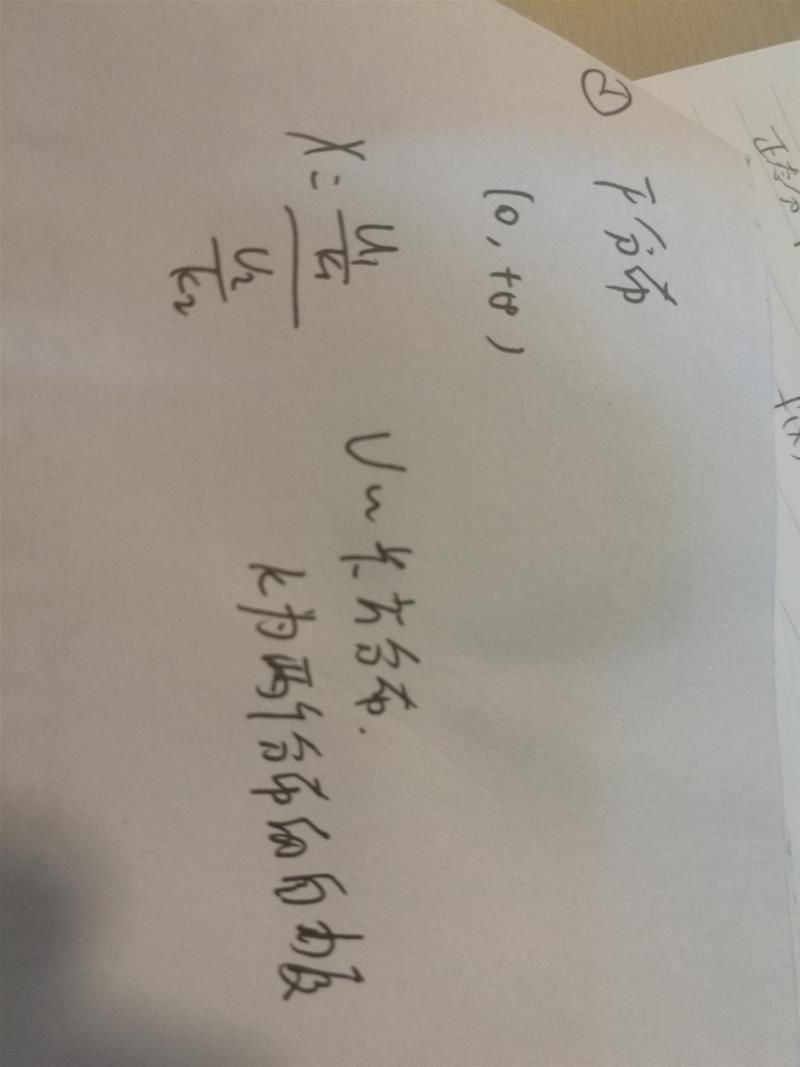 ② F分布
(0, +∞)
X = (U₁/k₁)/(U₂/k₂)
U~卡方分布.
k为两个分布的自由度
f(x)